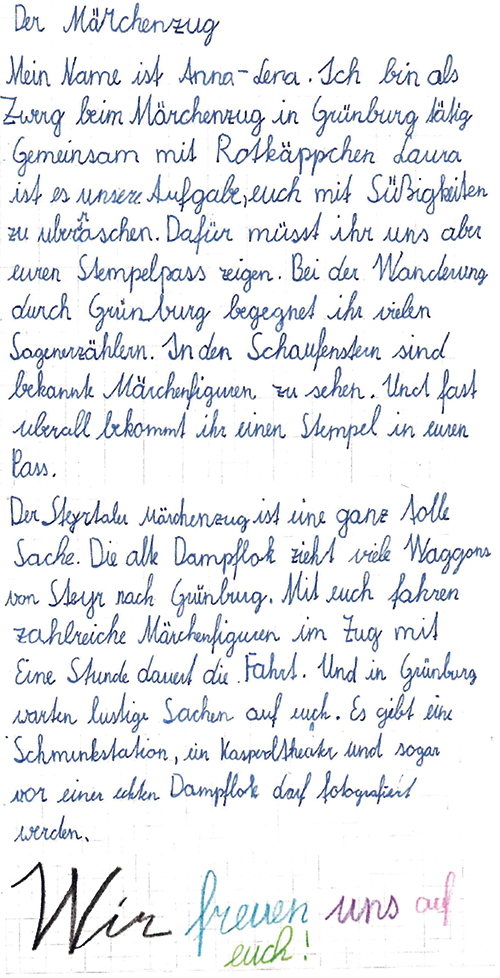 Der Märchenzug
Mein Name ist Anna-Lena. Ich bin als
Zwerg beim Märchenzug in Grünburg tätig
Gemeinsam mit Rotkäppchen Laura
ist es unsere Aufgabe, euch mit Süßigkeiten
zu uberräschen. Dafür müsst ihr uns aber
euren Stempelpass zeigen. Bei der Wanderung
durch Grünburg begegnet ihr vielen
Sagenerzählern. In den Schaufenstern sind
bekannte Märchenfiguren zu sehen. Und fast
uberall bekommt ihr einen Stempel in euren
Pass.
Der Steyrtaler Märchenzug ist eine ganz tolle
Sache. Die alte Dampflok zieht viele Waggons
von Steyr nach Grünburg. Mit euch fahren
zahlreiche Märchenfiguren im Zug mit
Eine Stunde dauert die Fahrt. Und in Grünburg
warten lustige Sachen auf euch. Es gibt eine
Schminkstation, ein Kasperltheater und sogar
vor einer echten Dampflok darf fotografiert
werden.
Wir freuen uns auf
euch!